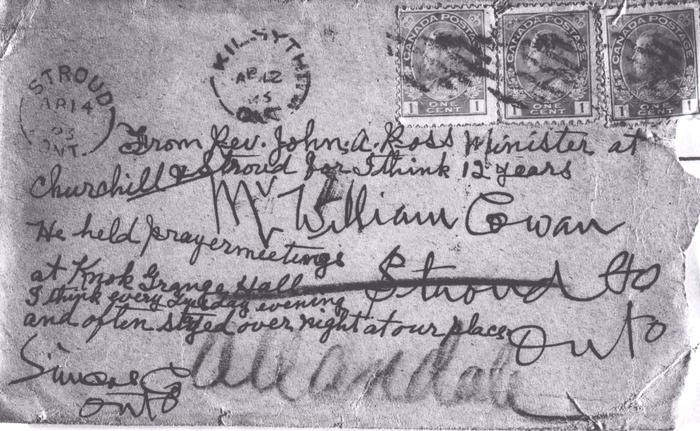 KILSYTH
AP 12
ONT.
STROUD
AP 14
23
ONT.
CANADA POSTAGE
1 ONE CENT 1
CANADA POSTAGE
1 ONE CENT 1
CANADA POSTAGE
1 ONE CENT 1
From Rev. John. A. Ross Minister at
Churchill & Stroud for I think 12 years
Mr. William Cowan
He held prayermeetings
at Knok Grange Hall
Stroud
I think every Tuesday evening
and often styed over night at our place
Onto
Simcoe Co
Onto
Allandale